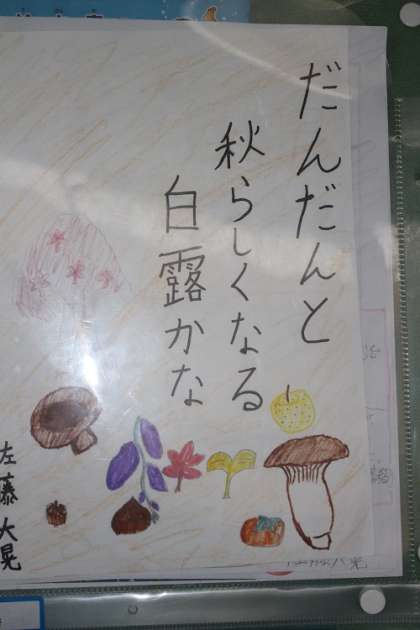 だんだんと
秋らしくなる
白露かな
左藤大晃